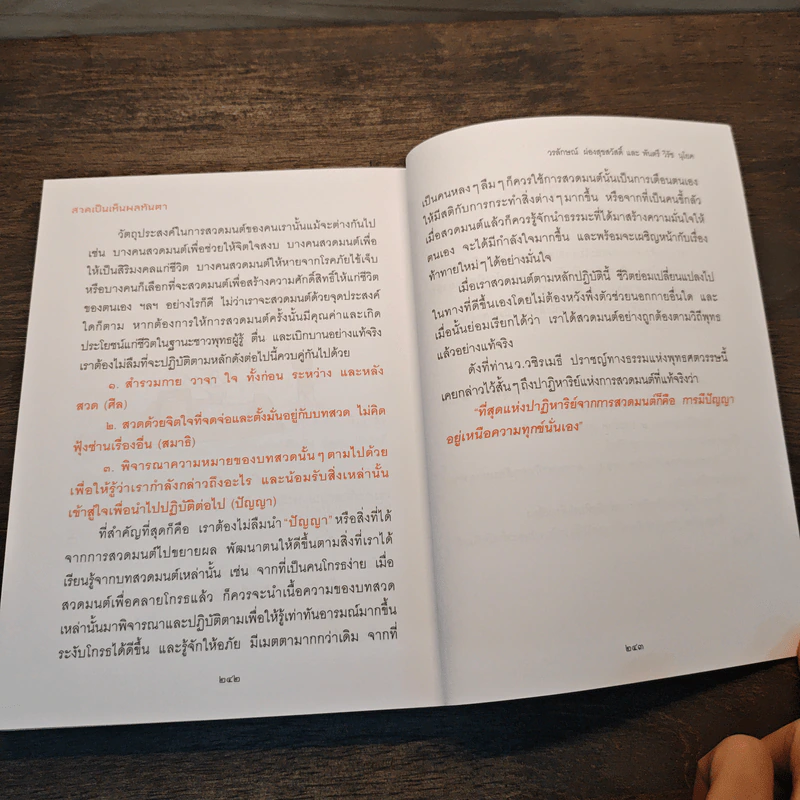 สวดเป็นเห็นผลทันตา
วัตถุประสงค์ในการสวดมนต์ของคนเรานั้นแม้จะต่างกันไป
เช่น บางคนสวดมนต์เพื่อช่วยให้จิตใจสงบ บางคนสวดมนต์เพื่อ
ให้เป็นสิริมงคลแก่ชีวิต บางคนสวดมนต์ให้หายจากโรคภัยไข้เจ็บ
หรือบางคนก็เลือกที่จะสวดมนต์เพื่อสร้างความศักดิ์สิทธิ์ให้แก่ชีวิต
ของตนเอง ฯลฯ อย่างไรก็ดี ไม่ว่าเราจะสวดมนต์ด้วยจุดประสงค์
ใดก็ตาม หากต้องการให้การสวดมนต์ครั้งนั้นมีคุณค่าและเกิด
ประโยชน์แก่ชีวิตในฐานะชาวพุทธผู้รู้ ตื่น และเบิกบานอย่างแท้จริง
เราต้องไม่ลืมที่จะปฏิบัติตามหลักดังต่อไปนี้ควบคู่กันไปด้วย
๑. สำรวมกาย วาจา ใจ ทั้งก่อน ระหว่าง และหลัง
สวด (ศีล)
๒. สวดด้วยจิตใจที่จดจ่อและตั้งมั่นอยู่กับบทสวด ไม่คิด
ฟุ้งซ่านเรื่องอื่น (สมาธิ)
๓. พิจารณาความหมายของบทสวดนั้นๆ ตามไปด้วย
เพื่อให้รู้ว่าเรากำลังกล่าวถึงอะไร และน้อมรับสิ่งเหล่านั้น
เข้าสู่ใจเพื่อนำไปปฏิบัติต่อไป (ปัญญา)
ที่สำคัญที่สุดก็คือ เราต้องไม่ลืมนำ “ปัญญา” หรือสิ่งที่ได้
จากการสวดมนต์ไปขยายผล พัฒนาตนให้ดีขึ้นตามสิ่งที่เราได้
เรียนรู้จากบทสวดมนต์เหล่านั้น เช่น จากที่เป็นคนโกรธง่าย เมื่อ
สวดมนต์เพื่อคลายโกรธแล้ว ก็ควรจะนำเนื้อความของบทสวด
เหล่านั้นมาพิจารณาและปฏิบัติตามเพื่อให้รู้เท่าทันอารมณ์มากขึ้น
ระงับโกรธได้ดีขึ้น และรู้จักให้อภัย มีเมตตามากกว่าเดิม จากที่
๒๔๒
วรลักษณ์ ผ่องสุขสวัสดิ์ และ พันตรี วิรัช
เป็นคนหลงๆ ลืมๆ ก็ควรใช้การสวดมนต์นั้นเป็นการเตือนตนเอง
ให้มีสติกับการกระทำสิ่งต่างๆ มากขึ้น หรือจากที่เป็นคนขี้กลัว
เมื่อสวดมนต์แล้วก็ควรรู้จักนำธรรมะที่ได้มาสร้างความมั่นใจให้
ตนเอง จะได้มีกำลังใจมากขึ้น และพร้อมจะเผชิญหน้ากับเรื่อง
ท้าทายใหม่ๆ ได้อย่างมั่นใจ
เมื่อเราสวดมนต์ตามหลักปฏิบัตินี้ ชีวิตย่อมเปลี่ยนแปลงไป
ในทางที่ดีขึ้นเองโดยไม่ต้องหวังพึ่งตัวช่วยนอกกายอื่นใด และ
เมื่อนั้นย่อมเรียกได้ว่า เราได้สวดมนต์อย่างถูกต้องตามวิถีพุทธ
แล้วอย่างแท้จริง
ดังที่ท่าน ว.วชิรเมธี ปราชญ์ทางธรรมแห่งพุทธศตวรรษนี้
เคยกล่าวไว้สั้นๆ ถึงปาฏิหาริย์แห่งการสวดมนต์ที่แท้จริงว่า
“ที่สุดแห่งปาฏิหาริย์จากการสวดมนต์ก็คือ การมีปัญญา
อยู่เหนือความทุกข์นั่นเอง”
๒๔๓